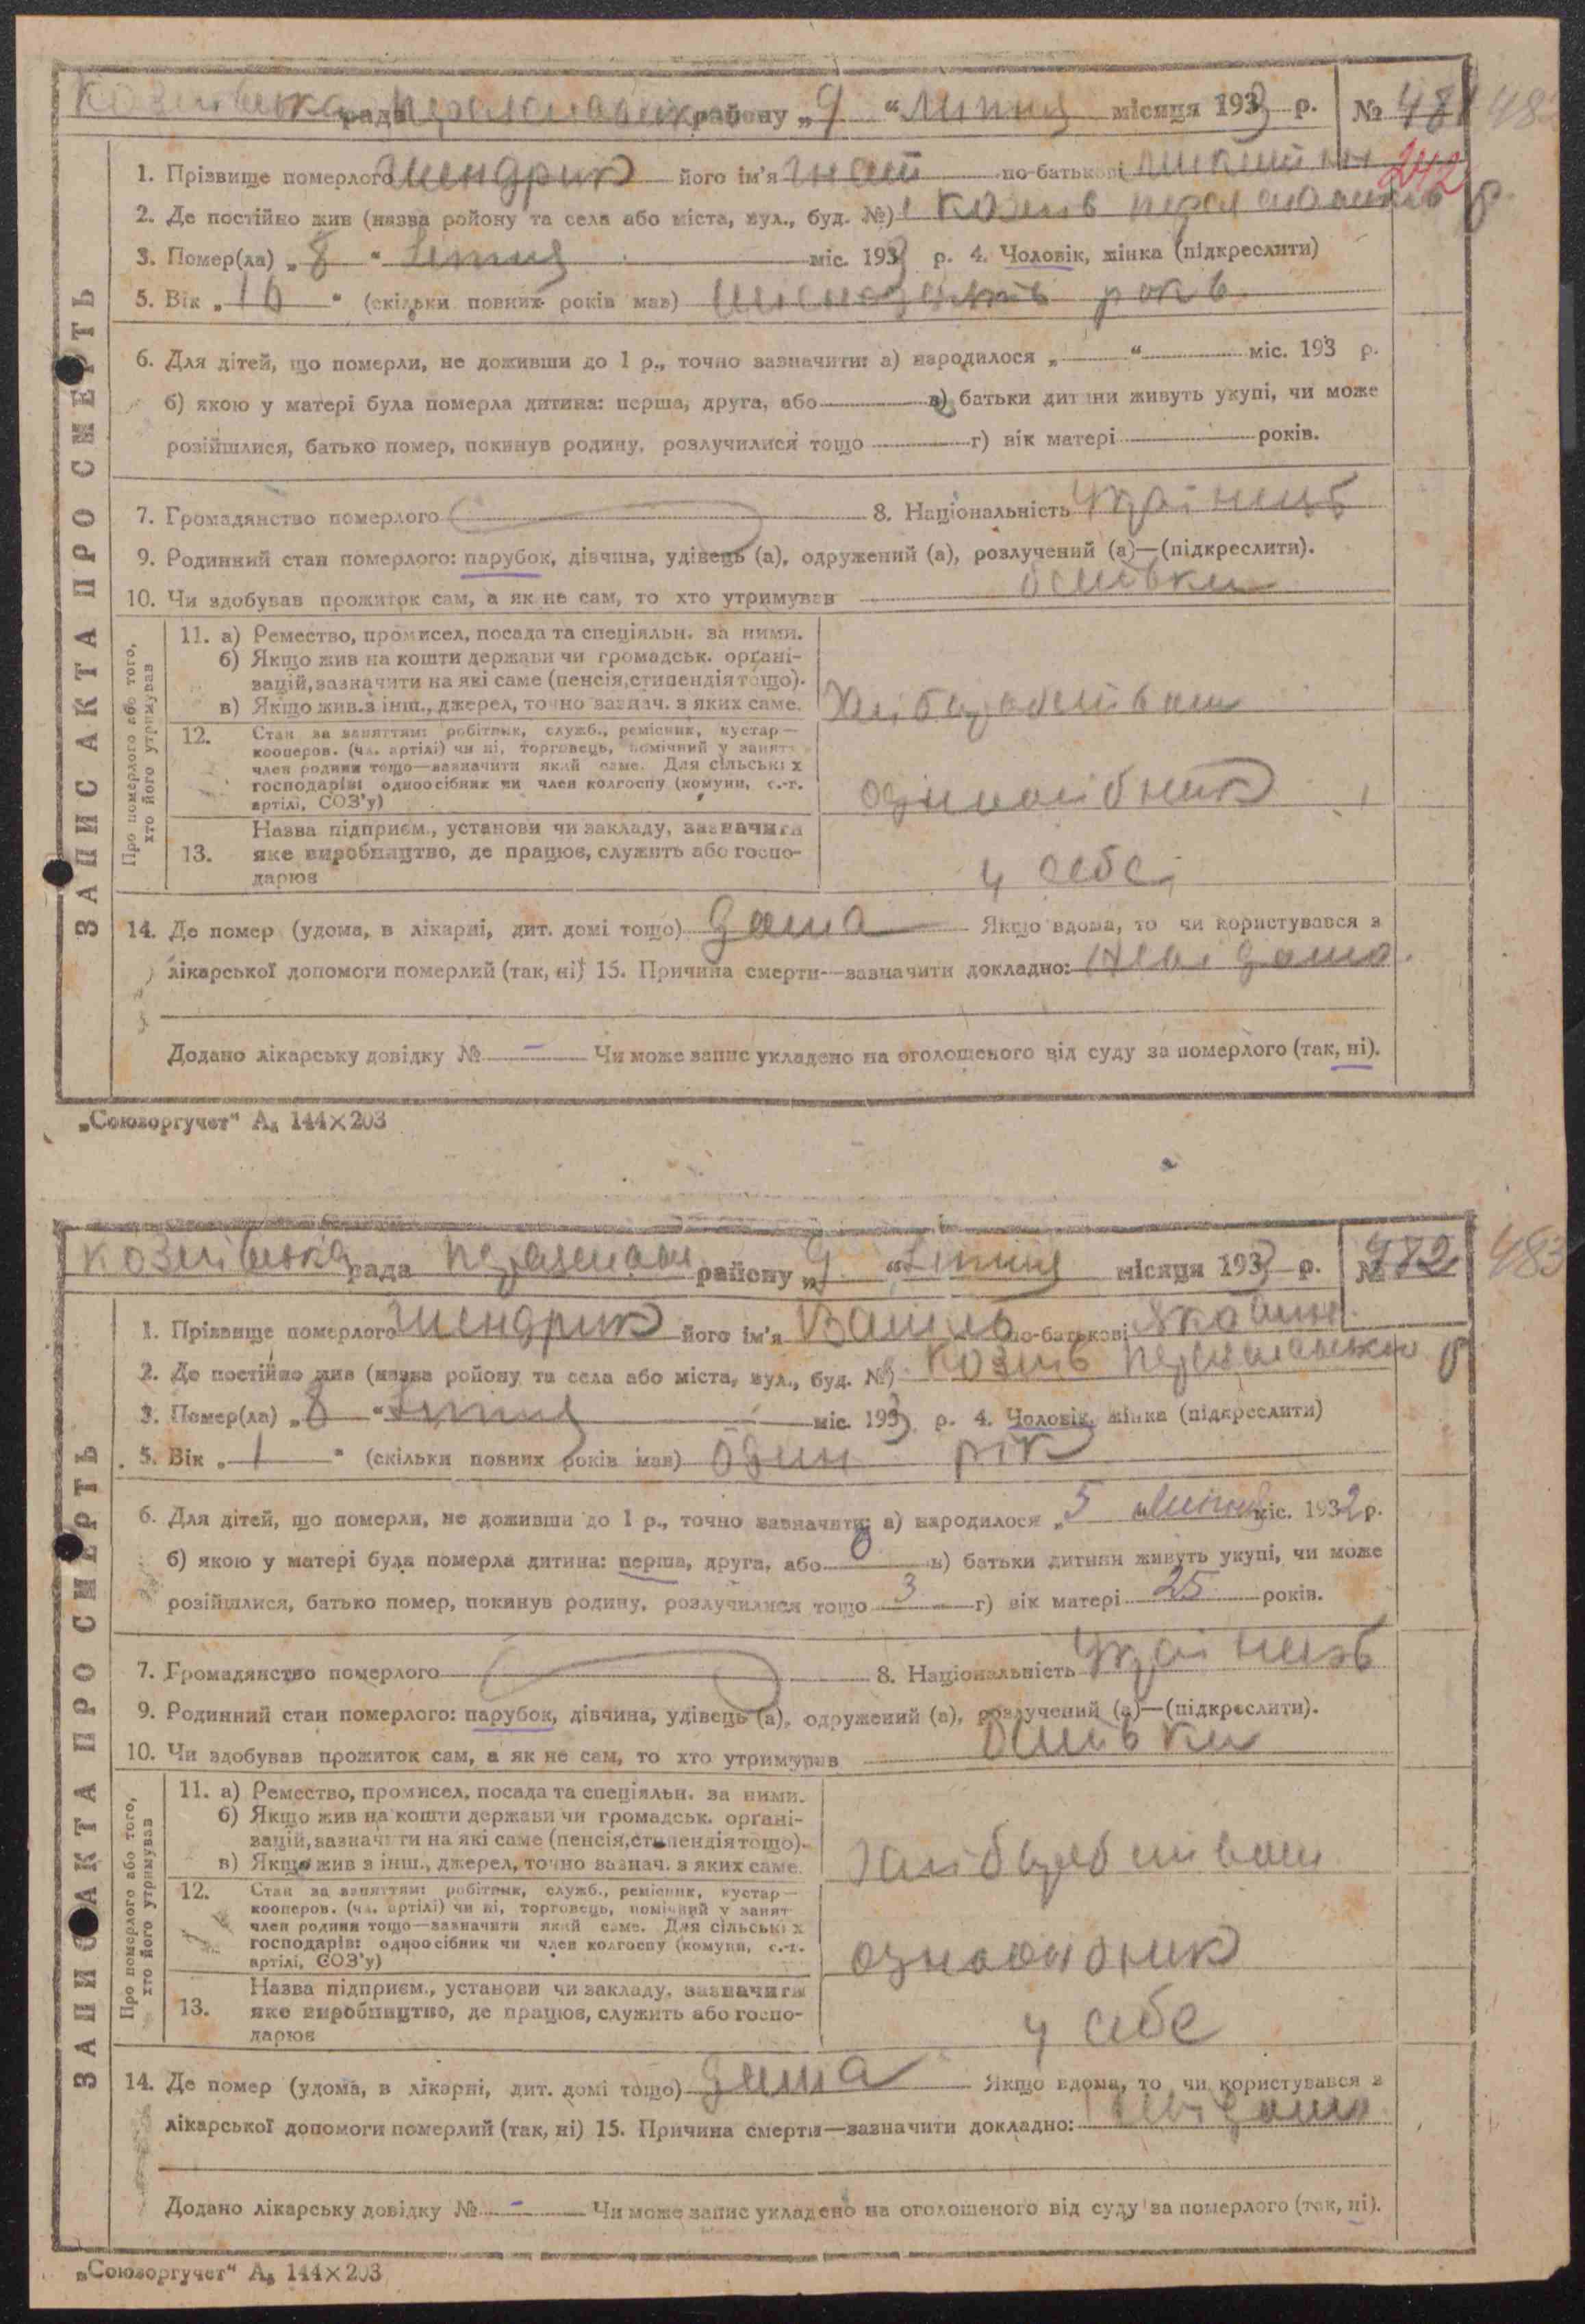 Козлівська рада Переяславськ району „9“ Липня місяця 1933 р. № 481 48
1. Прізвище померлого Шендрик його ім'я Гнат по-батькові Микит
242
2. Де постійно жив (назва ройону та села або міста, вул., буд. №) Козлів р
3. Помер(ла) „8“ Липня міс. 1933 р. 4. Чоловік, жінка (підкреслити)
5. Вік „16“ (скільки повних років мав) шіснадцять років
6. Для дітей, що померли, не доживши до 1 р., точно зазначити: а) народилося „ “ міс. 193 р.
б) якою у матері була померла дитина: перша, друга, або в) батьки дитини живуть укупі, чи може
розійшлися, батько помер, покинув родину, розлучилися тощо г) вік матері років.
7. Громадянство померлого 8. Національність Українець
9. Родинний стан померлого: парубок, дівчина, удівець (а), одружений (а), розлучений (а)—(підкреслити).
10. Чи здобував прожиток сам, а як не сам, то хто утримував
Про померлого або того,
хто його утримував
11. а) Ремество, промисел, посада та спеціяльн. за ними.
б) Якщо жив на кошти держави чи громадськ. органі-
зацій, зазначити на які саме (пенсія, стипендія тощо).
в) Якщо жив з інш., джерел, точно зазнач. з яких саме.
12. Стан за заняттям: робітник, служб., ремісник, кустар—
кооперов. (чл. артілі) чи ні, торговець, помічний у занятт
член родини тощо—зазначити який саме. Для сільських
господарів: одноосібник чи член колгоспу (комуни, с.-г.
артілі, СОЗ'у)
одноосібник
Назва підприєм., установи чи закладу, зазначити
13. яке виробництво, де працює, служить або госпо-
дарює
у себе
14. Де помер (удома, в лікарні, дит. домі тощо) дома Якщо вдома, то чи користувався з
лікарської допомоги померлий (так, ні) 15. Причина смерти—зазначити докладно:
Додано лікарську довідку № - Чи може запис укладено на оголошеного від суду за померлого (так, ні).
ЗАПИС АКТА ПРО СМЕРТЬ
„Союзоргучет“ А₅ 144×203
Козлівська рада Переяслав району „9“ Липня місяця 1933 р. № 482 483
1. Прізвище померлого Шендрик його ім'я Василь по-батькові Якович
2. Де постійно жив (назва ройону та села або міста, вул., буд. №) Козлів р
3. Помер(ла) „8“ Липня міс. 1933 р. 4. Чоловік, жінка (підкреслити)
5. Вік „1“ (скільки повних років мав) один рік
6. Для дітей, що померли, не доживши до 1 р., точно зазначити: а) народилося „5“ Липня міс. 1932 р.
б) якою у матері була померла дитина: перша, друга, або в) батьки дитини живуть укупі, чи може
розійшлися, батько помер, покинув родину, розлучилися тощо 3 г) вік матері 25 років.
7. Громадянство померлого 8. Національність Українець
9. Родинний стан померлого: парубок, дівчина, удівець (а), одружений (а), розлучений (а)—(підкреслити).
10. Чи здобував прожиток сам, а як не сам, то хто утримував
Про померлого або того,
хто його утримував
11. а) Ремество, промисел, посада та спеціяльн. за ними.
б) Якщо жив на кошти держави чи громадськ. органі-
зацій, зазначити на які саме (пенсія, стипендія тощо).
в) Якщо жив з інш., джерел, точно зазнач. з яких саме.
12. Стан за заняттям: робітник, служб., ремісник, кустар—
кооперов. (чл. артілі) чи ні, торговець, помічний у занят
член родини тощо—зазначити який саме. Для сільських
господарів: одноосібник чи член колгоспу (комуни, с.-г.
артілі, СОЗ'у)
одноосібник
Назва підприєм., установи чи закладу, зазначити
13. яке виробництво, де працює, служить або госпо-
дарює
у себе
14. Де помер (удома, в лікарні, дит. домі тощо) дома Якщо вдома, то чи користувався з
лікарської допомоги померлий (так, ні) 15. Причина смерти—зазначити докладно:
Додано лікарську довідку № - Чи може запис укладено на оголошеного від суду за померлого (так, ні).
ЗАПИС АКТА ПРО СМЕРТЬ
„Союзоргучет“ А₅ 144×203